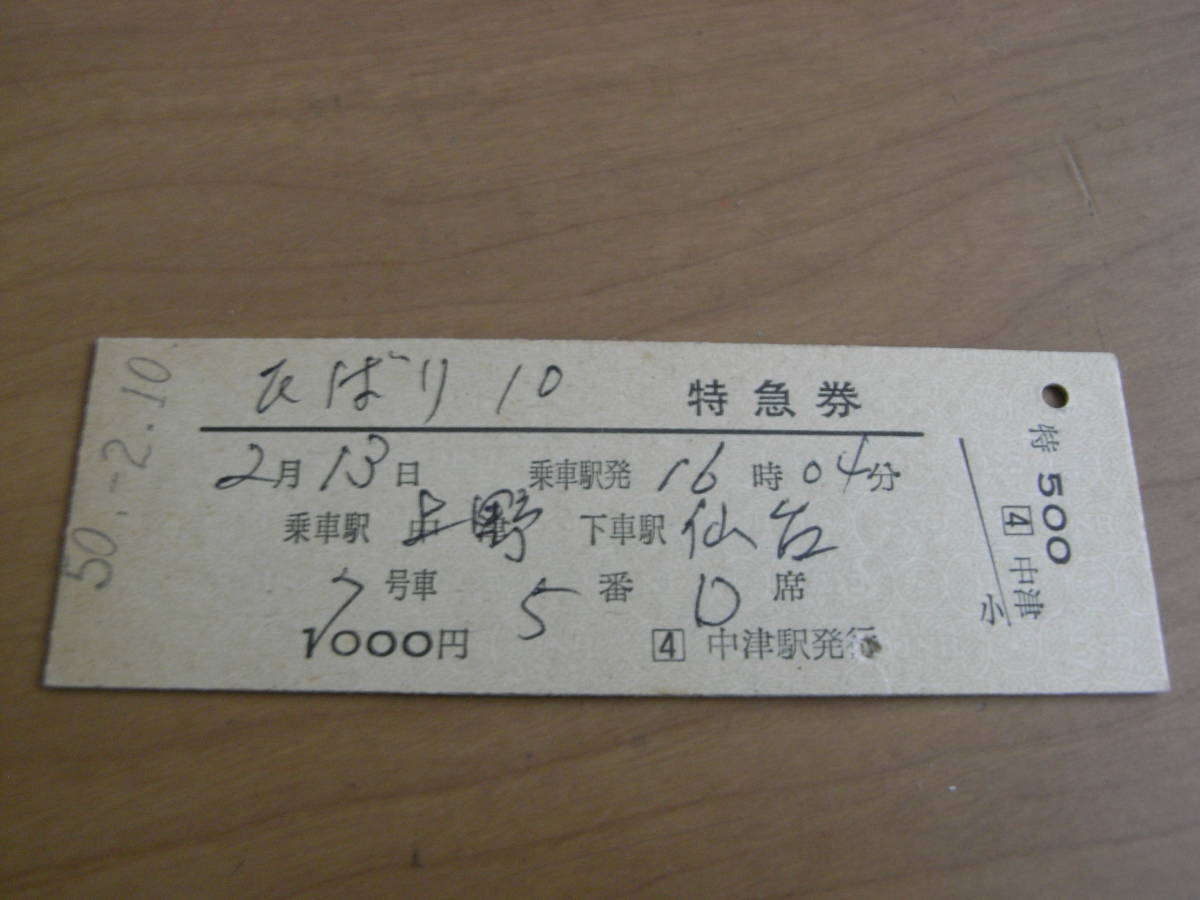 50.-2.10
ひばり 10 特急券
2月13日 乗車駅発 16時04分
乗車駅 上野 下車駅 仙台
7号車 5番 D席
1000円 4 中津駅発行
特500
4 中津
小